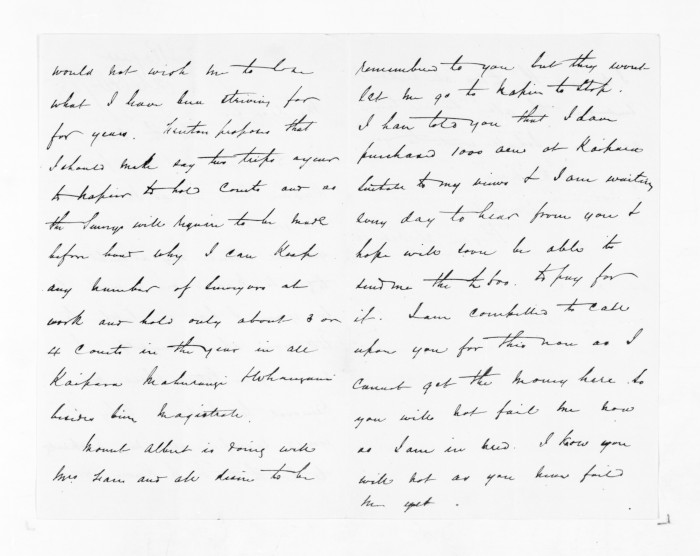 would not wish me to lose
what I have been striving for
for years. Fenton proposes that
I should make say two trips a year
to Napier to hold Courts and as
the Surveys will require to be made
before hand why I can keep
any number of Surveyors at
work and hold only about 3 or
4 Courts in the year in all
Kaipara Mahurangi & Whangarei
besides being Magistrate.
Mount Albert is doing well
Mrs and all desire to be
remembered to you but they wont
let me go to Napier to stop.
I have told you that I have
purchased 1000 acres at Kaipara
suitable to my views & I am waiting
every day to hear from you &
hope will soon be able to
send me the to pay for
it. I am compelled to call
upon you for this now as I
cannot get the money here. So
you will not fail me now
as I am in need. I know you
will not as you never failed
me yet.